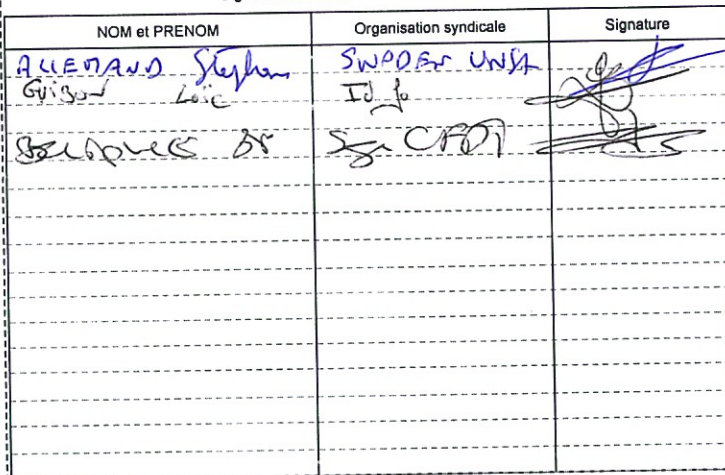 NOM et PRENOM Organisation syndicale Signature
ALLEMAND Stéphane SNPDEN UNSA
Guison Loïc Id fo
CFDT